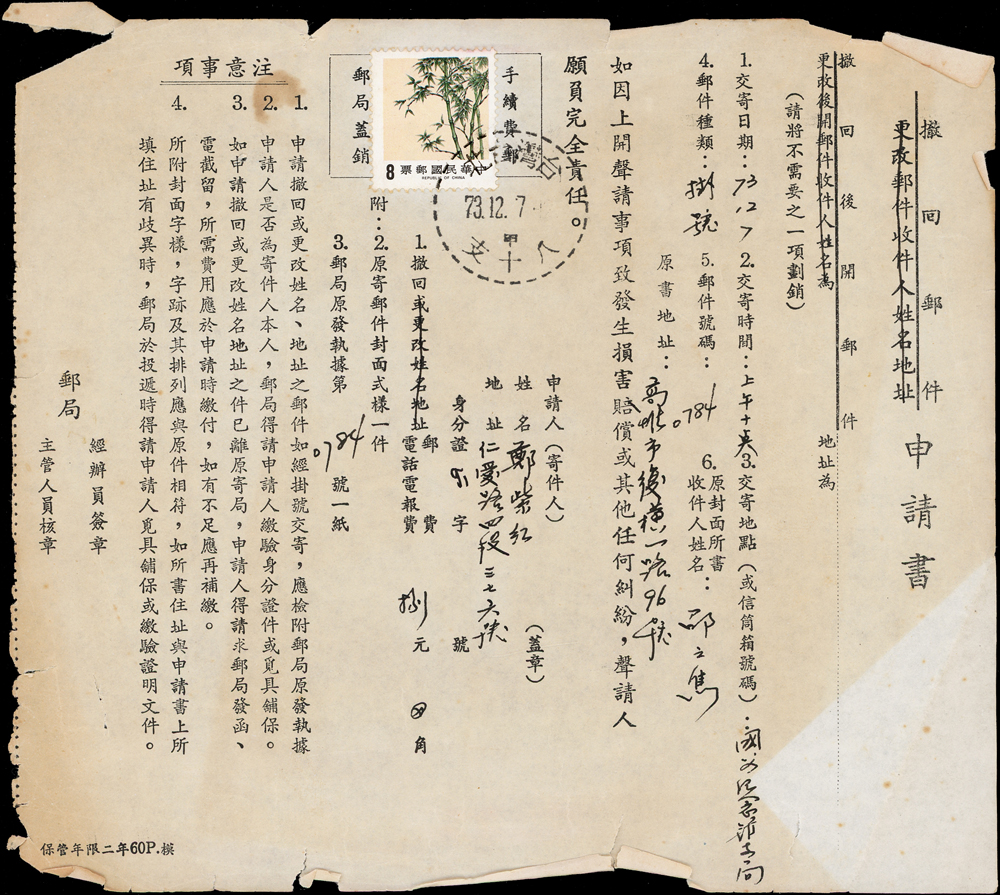 撤回郵件
更改郵件收件人姓名地址
申請書
撤回後開郵件
更改後開郵件收件人姓名為
地址為
(請將不需要之一項劃銷)
1. 交寄日期:73 12 7 2. 交寄時間:上午十 3. 交寄地點(或信筒箱號碼):國
4. 郵件種類:掛號 5. 郵件號碼:0784 6. 原封面所書收件人姓名:
原書地址:高雄市復橫一路96號
如因上開聲請事項致發生損害賠償或其他任何糾紛,聲請人
願負完全責任。
申請人(寄件人)
姓名 鄭紫紅 (蓋章)
地址 仁愛路四段三七六號
身分證 字 號
手續費郵
郵局蓋銷
中華民國郵票
REPUBLIC OF CHINA
8
台灣
73.12.7
甲
十
附:1. 撤回或更改姓名地址郵費
電話電報費 捌元 四角
2. 原寄郵件封面式樣一件
3. 郵局原發執據第 0784 號一紙
注意事項
1. 申請撤回或更改姓名、地址之郵件如經掛號交寄,應檢附郵局原發執據
2. 申請人是否為寄件人本人,郵局得請申請人繳驗身分證件或覓具舖保。
3. 如申請撤回或更改姓名地址之件已離原寄局,申請人得請求郵局發函、
電截留,所需費用應於申請時繳付,如有不足應再補繳。
4. 所附封面字樣,字跡及其排列應與原件相符,如所書住址與申請書上所
填住址有歧異時,郵局於投遞時得請申請人覓具舖保或繳驗證明文件。
郵局
經辦員簽章
主管人員核章
保管年限二年60P.模